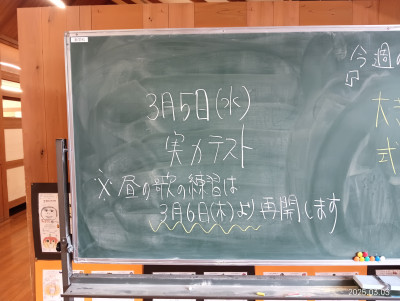 3月5日(水)
実力テスト
※昼の歌の練習は
3月6日(木)より再開します
今週の
大
式
2025.03.03